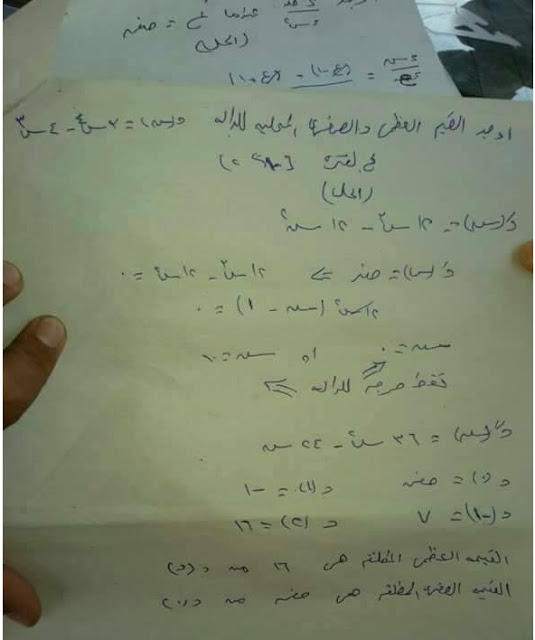 عندما ع = صفر
(الحل)
اوجد القيم العظمى والصغرى المحلية للدالة د(س) = ٣س٤ - ٤س٣
(الحل)
دَ(س) = ١٢س٣ - ١٢س٢
دَ(س) = صفر ⇐ ١٢س٣ - ١٢س٢ = ٠
١٢س٢ (س - ١) = ٠
س = ٠ او س = ١
نقط حرجة للدالة
دً(س) = ٣٦س٢ - ٢٤س
د(٠) = صفر د(١) = -١
د(-١) = ٧ د(٢) = ١٦
القيمة العظمى المطلقة هى ١٦ من د(٢)
القيمة الصغرى المطلقة هى صفر من د(٠)